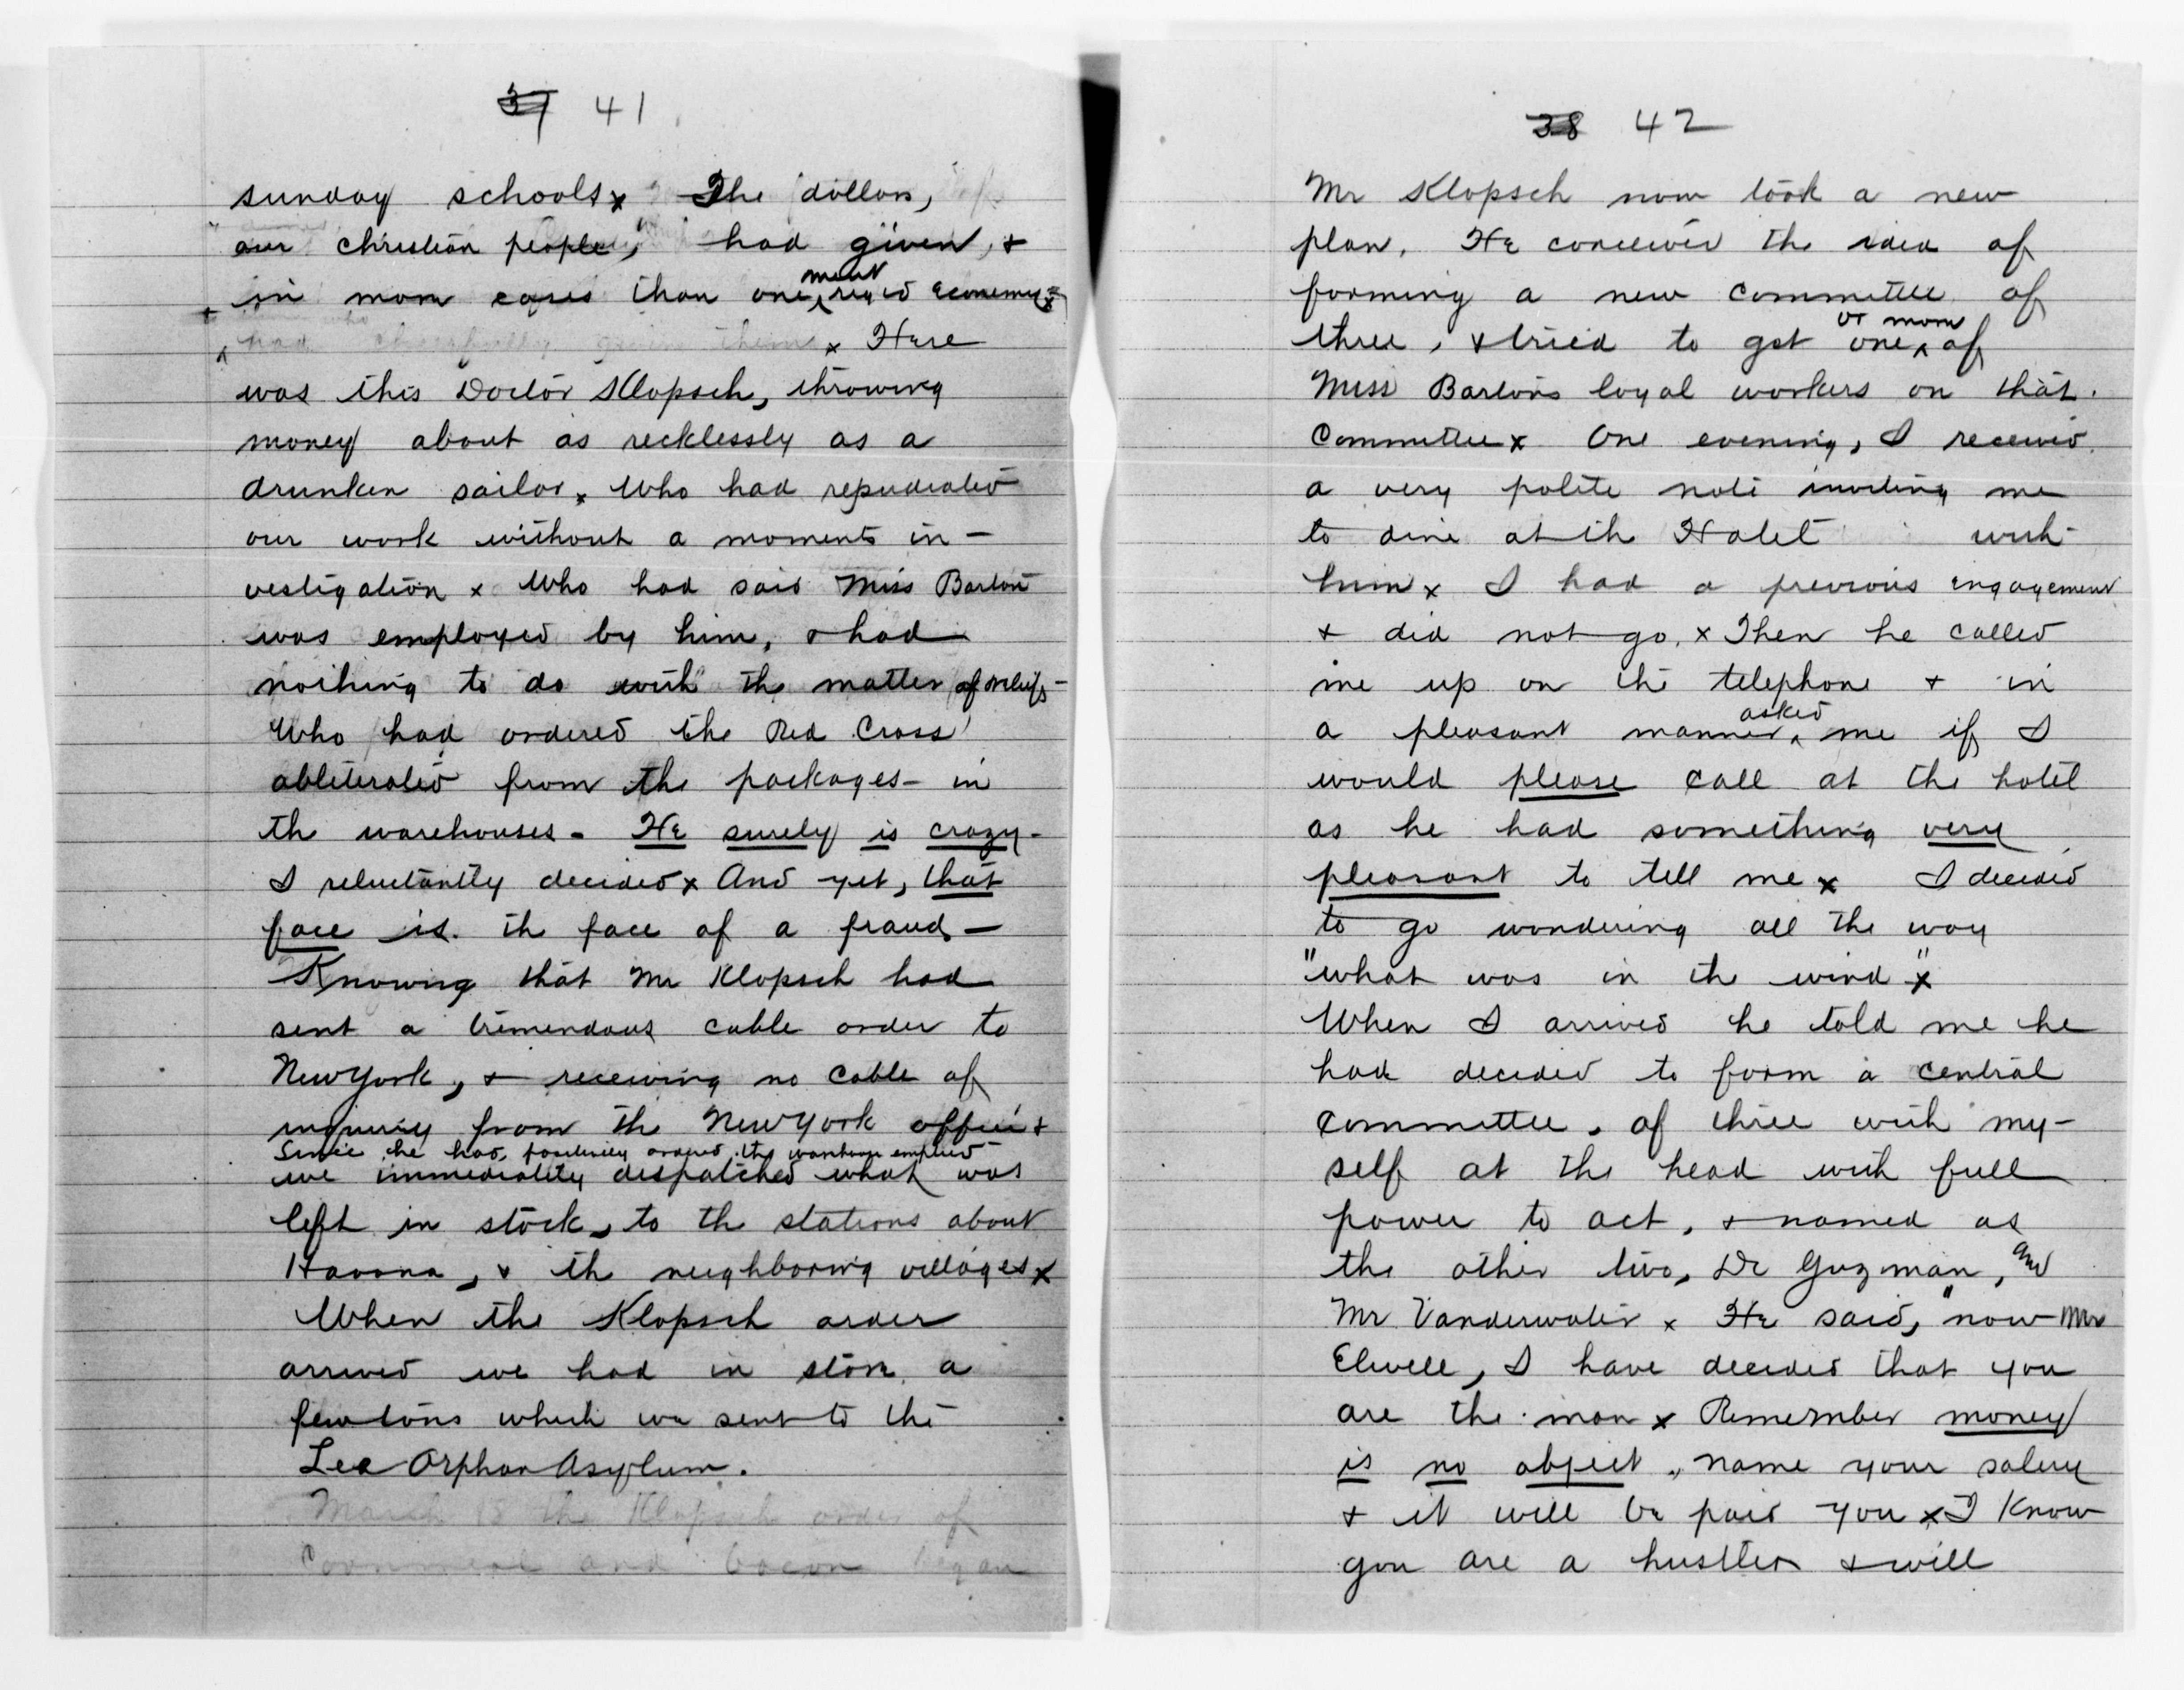 37 41
sunday schools x The dollars,
our christian people, had given, +
in more cases than one, meant rigid economy x
had cheerfully given them x Here
was this Doctor Klopsch, throwing
money about as recklessly as a
drunken sailor x Who had repudiated
our work without a moments in-
vestigation x Who had said Miss Barton
was employed by him, + had
nothing to do with the matter of relief -
Who had ordered the Red Cross
obliterated from the packages - in
the warehouses - He surely is crazy -
I reluctantly decided x And yet, that
face is the face of a fraud -
Knowing that Mr Klopsch had
sent a tremendous cable order to
New York, + receiving no cable of
inquiry from the New York office +
Since he had positively ordered the warehouse emptied
we immediately despatched what was
left in stock, to the stations about
Havana, + the neighboring villages x
When the Klopsch order
arrived we had in store a
few tons which we sent to the
Lee Orphan Asylum.
March 18 the Klopsch order of
Cornmeal and bacon began
38 42
Mr Klopsch now took a new
plan. He conceived the idea of
forming a new committee of
three, + tried to get one or more of
Miss Bartons loyal workers on that
Committee x One evening, I received
a very polite note inviting me
to dine at the Hotel with
him x I had a previous engagement
+ did not go. x Then he called
me up on the telephone + in
a pleasant manner asked me if I
would please call at the hotel
as he had something very
pleasant to tell me x I decided
to go wondering all the way
"what was in the wind" x
When I arrived he told me he
had decided to form a central
committee, of three with my-
self at the head with full
power to act, + named as
the other two, Dr Guzman, and
Mr Vanderwater x He said, "now Mr
Elwell, I have decided that you
are the man x Remember money
is no object, name your salary
+ it will be paid you x I Know
you are a hustler + will